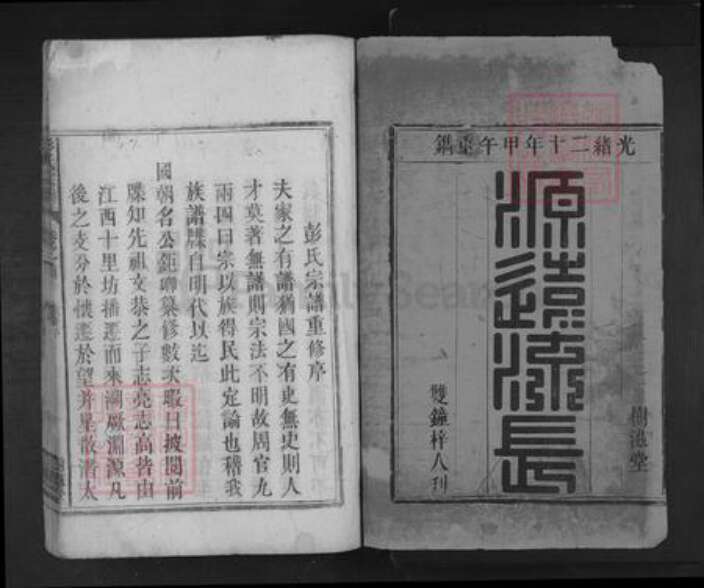 光緒二十年甲午重鐫
源遠流長
樹滋堂
雙鐘梓人刊
彭氏宗譜重修序
夫家之有譜猶國之有史無史則人
才莫著無譜則宗法不明故周官九
兩四曰宗以族得民此定論也稽我
族譜牒自明代以迄
國朝名公鉅卿纂修數次暇日披閱前
牒知先祖文恭之子志亮志高皆由
江西十里坊播遷而來溯厥淵源凡
後之支分於懷遷於望井星散者太